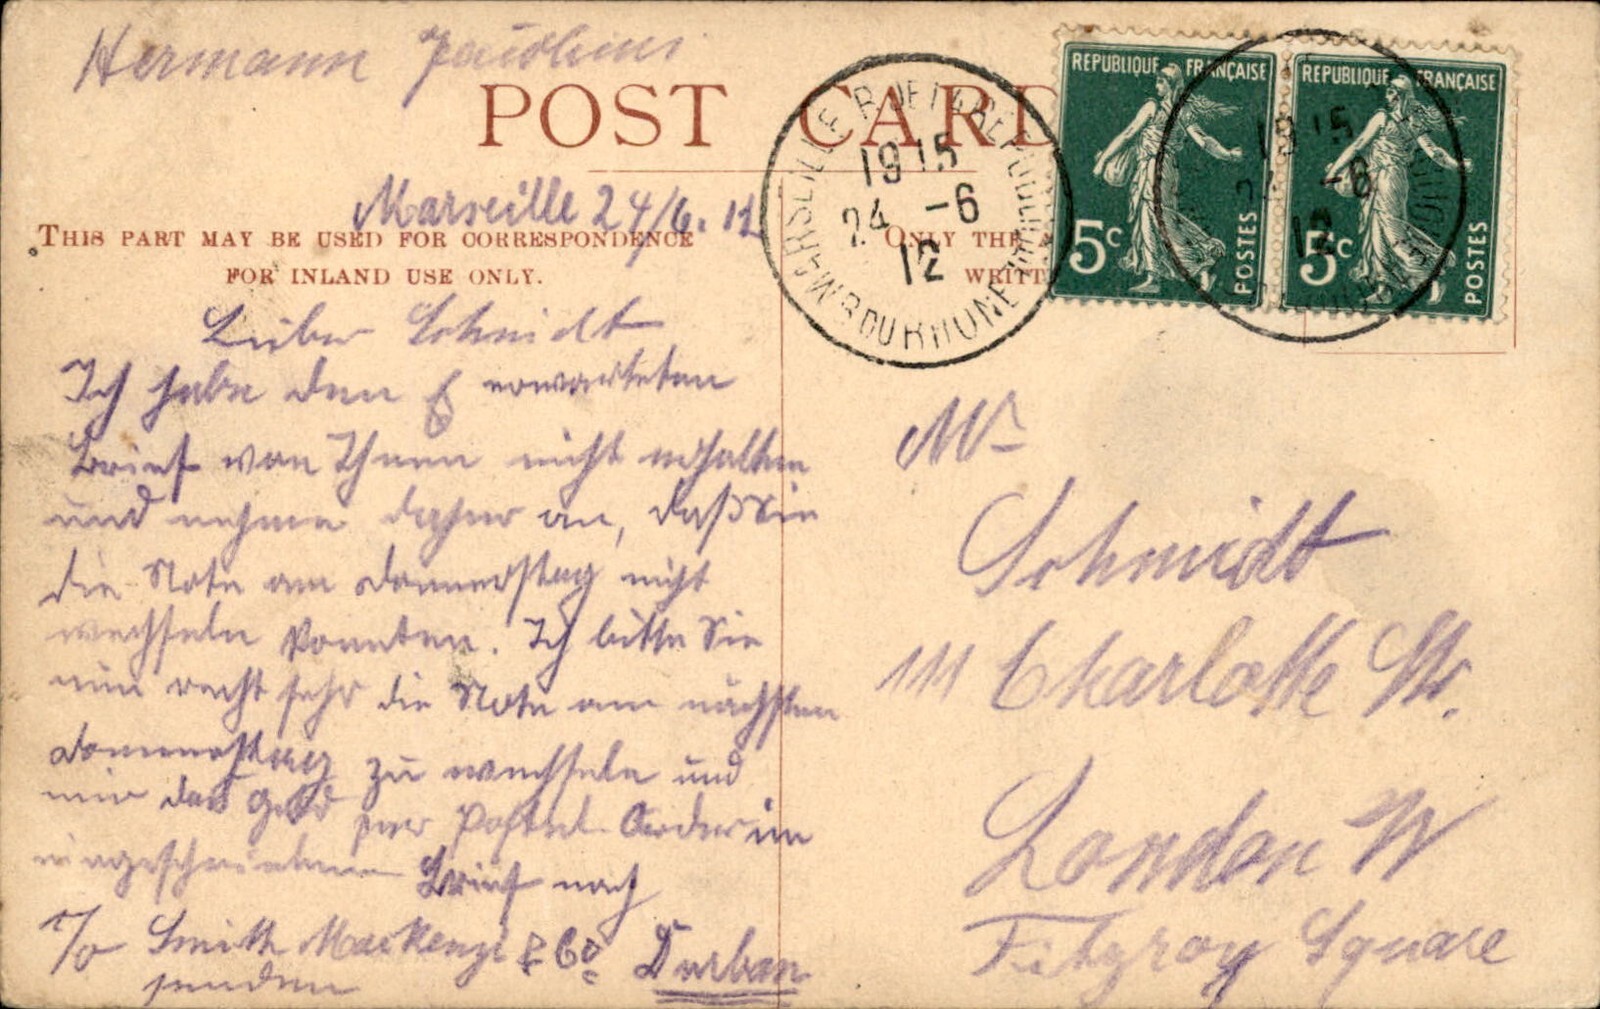 Hermann
POST CARD
REPUBLIQUE FRANÇAISE
5c POSTES
REPUBLIQUE FRANÇAISE
5c POSTES
MARSEILLE R. DE LA REPUBLIQUE
1915
24 -6
12
BCHES DU RHONE
1915
24 -6
12
Marseille 24/6. 12
THIS PART MAY BE USED FOR CORRESPONDENCE
FOR INLAND USE ONLY.
ONLY THE
WRITT
Lieber Schmidt
Ich habe den erwarteten
Brief von Ihnen nicht erhalten
und nehme daher an, daß Sie
die Note am Donnerstag nicht
wechseln konnten. Ich bitte Sie
nun recht sehr die Note am nächsten
Donnerstag zu wechseln und
mir das Geld per Postal-Order im
eingeschriebenen Brief nach
c/o Smith Mackenzi & Co Durban
senden
Mr
Schmidt
111 Charlotte Str.
London W
Fitzroy Square